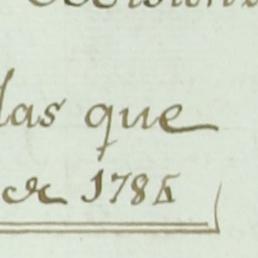 las que
de 1785